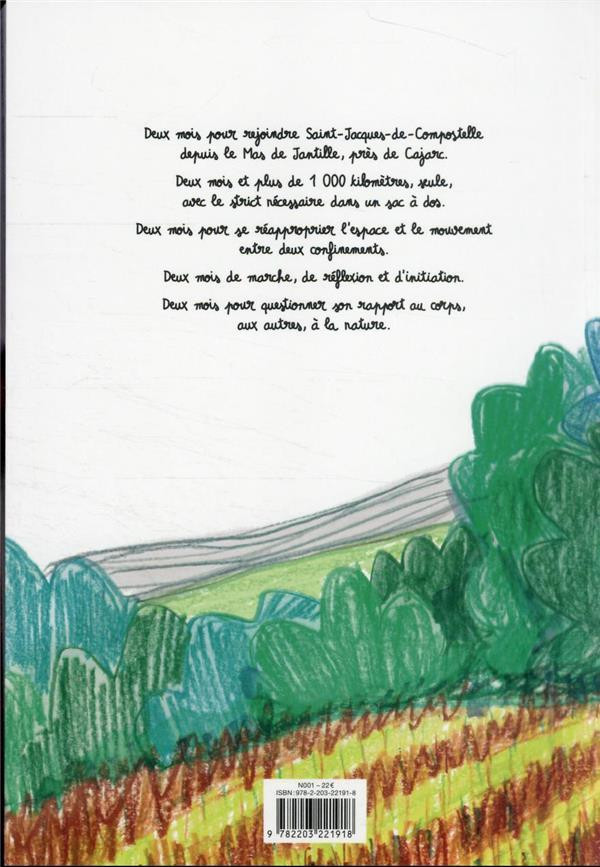 Deux mois pour rejoindre Saint-Jacques-de-Compostelle
depuis le Mas de Jantille, près de Cajarc.
Deux mois et plus de 1 000 kilomètres, seule,
avec le strict nécessaire dans un sac à dos.
Deux mois pour se réapproprier l'espace et le mouvement
entre deux confinements.
Deux mois de marche, de réflexion et d'initiation.
Deux mois pour questionner son rapport au corps,
aux autres, à la nature.
N001 – 22 €
ISBN : 978-2-203-22191-8
9 782203 221918